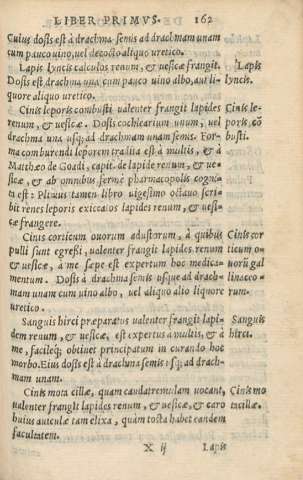 LIBER PRIMVS. 162
Cuius dosis est à drachma semis ad drachmam unam
cum pauco uino, uel decocto aliquo uretico.
Lapis Lyncis calculos renum, & uesicæ frangit. Lapis
Dosis est drachma una cum pauco uino albo, aut li- lyncis.
quore aliquo uretico.
Cinis leporis combusti ualenter frangit lapides Cinis le-
renum, & uesicæ. Dosis cochlearium unum, uel poris cō
drachma una usq; ad drachmam unam semis. For- busti.
ma comburendi leporem tradita est à multis, & à
Matthæo de Gradi, capit. de lapide renum, & ue-
sicæ, & ab omnibus fermè pharmacopolis cogni-
ta est: Plinius tamen libro uigesimo octauo scri-
bit renes leporis exiccatos lapides renum, & uesi-
cæ frangere.
Cinis corticum ouorum adustorum, à quibus Cinis cor
pulli sunt egressi, ualenter frangit lapides renum ticum o-
& uesicæ, à me sæpe est expertum hoc medica- uorū gal
mentum. Dosis à drachma semis usque ad drach- linaceo-
mam unam cum uino albo, uel aliquo alio liquore rum.
uretico.
Sanguis hirci præparatus ualenter frangit lapi- Sanguis
dem renum, & uesicæ, est expertus à multis, & à hirci.
me, facileq; obtinet principatum in curando hoc
morbo. Eius dosis est à drachma semis usq; ad drach-
mam unam.
Cinis mota cillæ, quam caudatremulam uocant, Cinis mo
ualenter frangit lapides renum, & uesicæ, & caro tacillæ.
huius auiculæ tam elixa, quàm tosta habet eandem
facultatem.
X ij Lapis